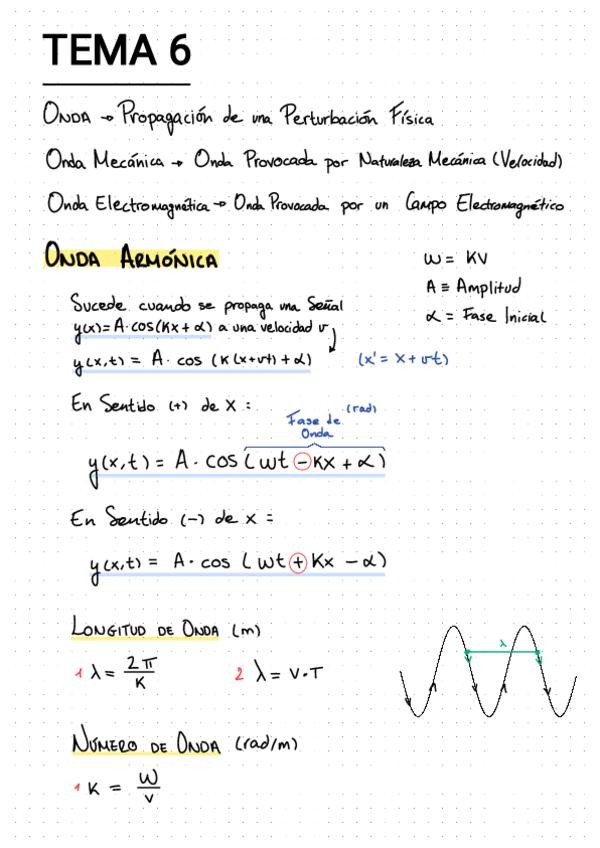 TEMA 6
ONDA → Propagación de una Perturbación Física
Onda Mecánica → Onda Provocada por Naturaleza Mecánica (Velocidad)
Onda Electromagnética → Onda Provocada por un Campo Electromagnético
ONDA ARMÓNICA
ω = KV
A ≡ Amplitud
α = Fase Inicial
Sucede cuando se propaga una Señal
y(x) = A·cos(Kx + α) a una velocidad v
y(x,t) = A· cos (K(x+vt) + α) (x' = x + vt)
En Sentido (+) de X :
Fase de Onda (rad)
y(x,t) = A· cos (ωt − Kx + α)
En Sentido (−) de x :
y(x,t) = A· cos (ωt + Kx − α)
LONGITUD DE ONDA (m)
1 λ = 2π/K 2 λ = V·T
λ
NÚMERO DE ONDA (rad/m)
1 K = ω/v